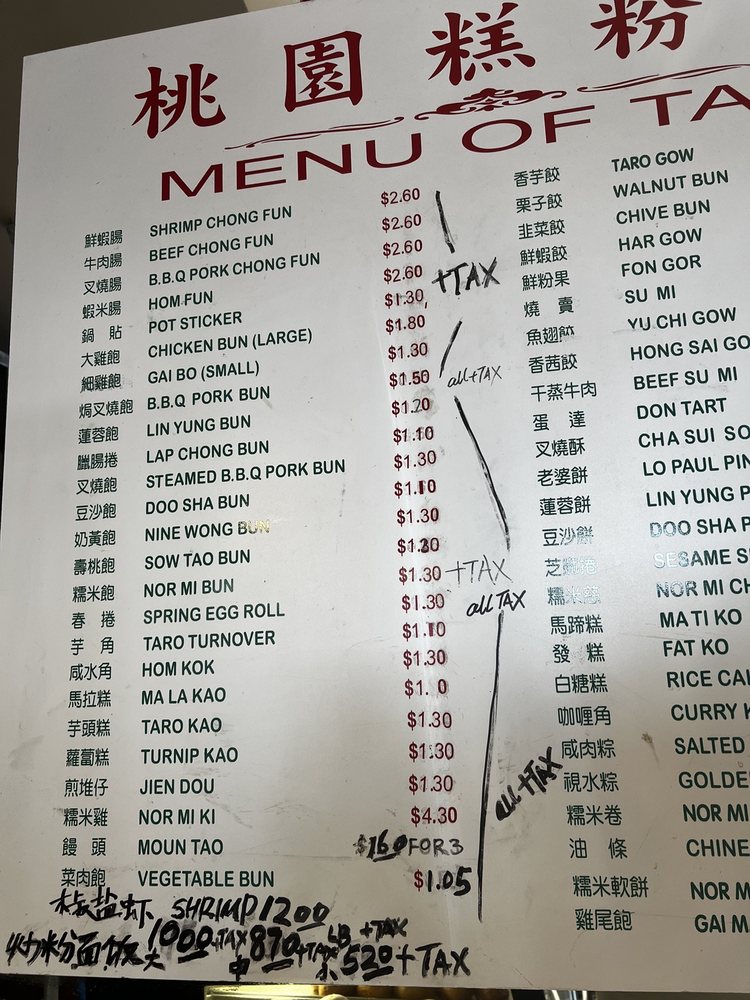 桃園糕粉
MENU OF TA
鮮蝦腸 SHRIMP CHONG FUN $2.60
牛肉腸 BEEF CHONG FUN $2.60
叉燒腸 B.B.Q PORK CHONG FUN $2.60
蝦米腸 HOM FUN $2.60
+TAX
鍋 貼 POT STICKER $1.30
大雞飽 CHICKEN BUN (LARGE) $1.80
細雞飽 GAI BO (SMALL) $1.30
焗叉燒飽 B.B.Q PORK BUN $1.50
all+TAX
蓮蓉飽 LIN YUNG BUN $1.20
臘腸捲 LAP CHONG BUN $1.10
叉燒飽 STEAMED B.B.Q PORK BUN $1.30
豆沙飽 DOO SHA BUN $1.10
奶黃飽 NINE WONG BUN $1.30
壽桃飽 SOW TAO BUN
糯米飽 NOR MI BUN $1.30
+TAX
春 捲 SPRING EGG ROLL $1.30
all TAX
芋 角 TARO TURNOVER $1.10
咸水角 HOM KOK $1.30
馬拉糕 MA LA KAO $1. 0
芋頭糕 TARO KAO $1.30
蘿蔔糕 TURNIP KAO $1.30
煎堆仔 JIEN DOU $1.30
all+TAX
糯米雞 NOR MI KI $4.30
饅 頭 MOUN TAO $160 FOR 3
菜肉飽 VEGETABLE BUN $1.05
香芋餃 TARO GOW
栗子餃 WALNUT BUN
韭菜餃 CHIVE BUN
鮮蝦餃 HAR GOW
鮮粉果 FON GOR
燒 賣 SU MI
魚翅餃 YU CHI GOW
香茜餃 HONG SAI GO
干蒸牛肉 BEEF SU MI
蛋 達 DON TART
叉燒酥 CHA SUI SO
老婆餅 LO PAUL PIN
蓮蓉餅 LIN YUNG P
豆沙餅 DOO SHA P
芝麻捲 SESAME S
糯米糍 NOR MI CH
馬蹄糕 MA TI KO
發 糕 FAT KO
白糖糕 RICE CA
咖喱角 CURRY K
咸肉粽 SALTED
視水粽 GOLDE
糯米卷 NOR MI
油 條 CHINE
糯米軟餅 NOR M
雞尾飽 GAI M
椒盐虾 SHRIMP 1200 LB +TAX
炒粉面饭 大 1000+TAX 中 870+TAX 小 520+TAX